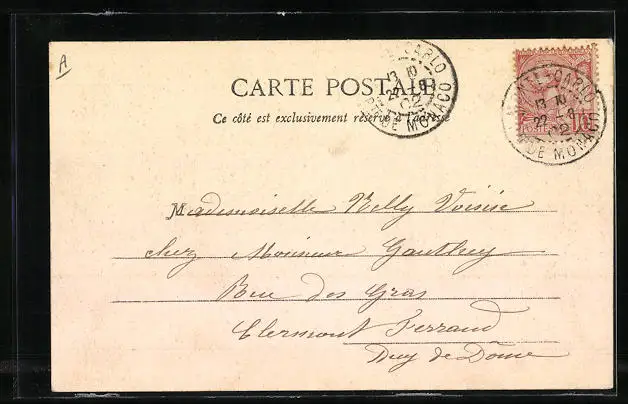 A
CARTE POSTALE
Ce côté est exclusivement réservé à l'adresse
MONTE-CARLO
13 10
22
02
PTÉ DE MONACO
MONTE-CARLO
13 10
22 -8
02
PTÉ DE MONACO
POSTES
Mademoiselle Nelly Voisin
chez Monsieur Gauthey
Rue des Gras
Clermont Ferrand
Puy de Dôme